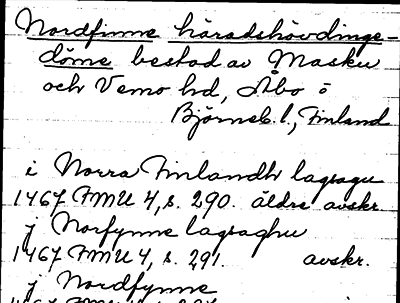 Nordfinne häradshövdinge-
döme bestod av Masku
och Vemo hd, Åbo o
Björneb. l., Finland
i Norra Finlandh lagsagu
1467 FMU 4, s. 290. äldre avskr.
j Norfynne lagsaghu
1467 FMU 4, s. 291. avskr.
j Nordfynne